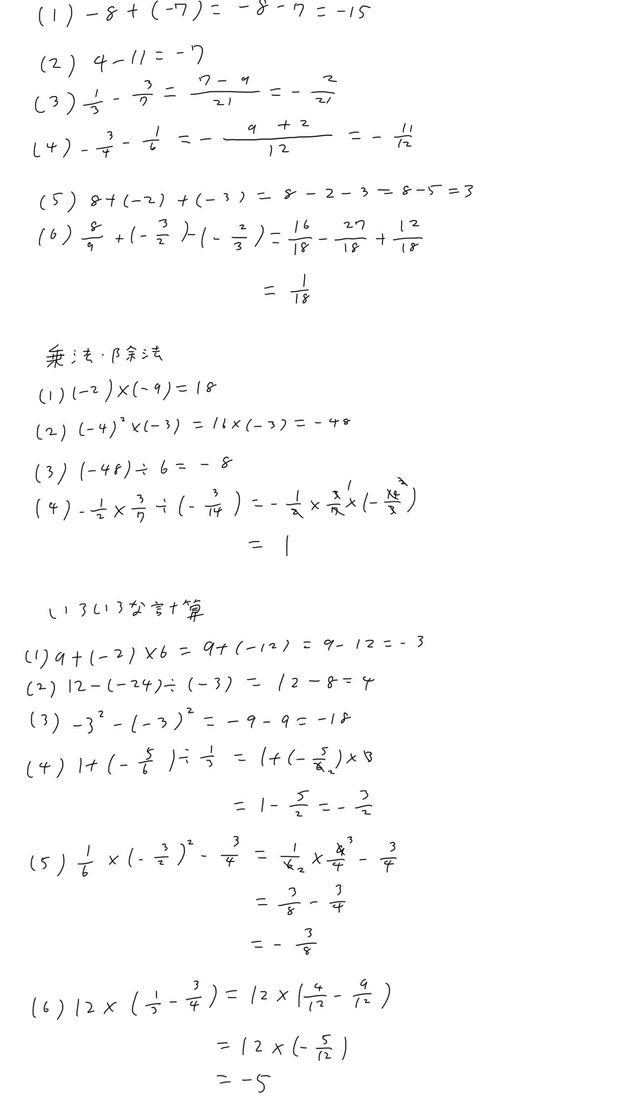 (1) -8+(-7)= -8-7=-15
(2) 4-11=-7
(3) 1/3 - 3/7 = (7-9)/21 = -2/21
(4) -3/4 - 1/6 = -(9+2)/12 = -11/12
(5) 8+(-2)+(-3)=8-2-3=8-5=3
(6) 8/9 +(-3/2)-(-2/3)=16/18 - 27/18 + 12/18
= 1/18
乗法・除法
(1)(-2)×(-9)=18
(2) (-4)²×(-3)=16×(-3)=-48
(3) (-48)÷6=-8
(4) -1/2 × 3/7 ÷(-3/14)=-1/2 × 3/7 ×(-14/3)
= 1
いろいろな計算
(1) 9+(-2)×6=9+(-12)=9-12=-3
(2) 12-(-24)÷(-3) = 12-8=4
(3) -3²-(-3)²=-9-9=-18
(4) 1+(-5/6)÷1/3 = 1+(-5/6 2)×3
= 1-5/2=-3/2
(5) 1/6 ×(-3/2)²- 3/4 = 1/6 2 × 9/4 3 - 3/4
= 3/8 - 3/4
= -3/8
(6) 12×(1/3 - 3/4)=12×(4/12 - 9/12)
=12×(-5/12)
=-5